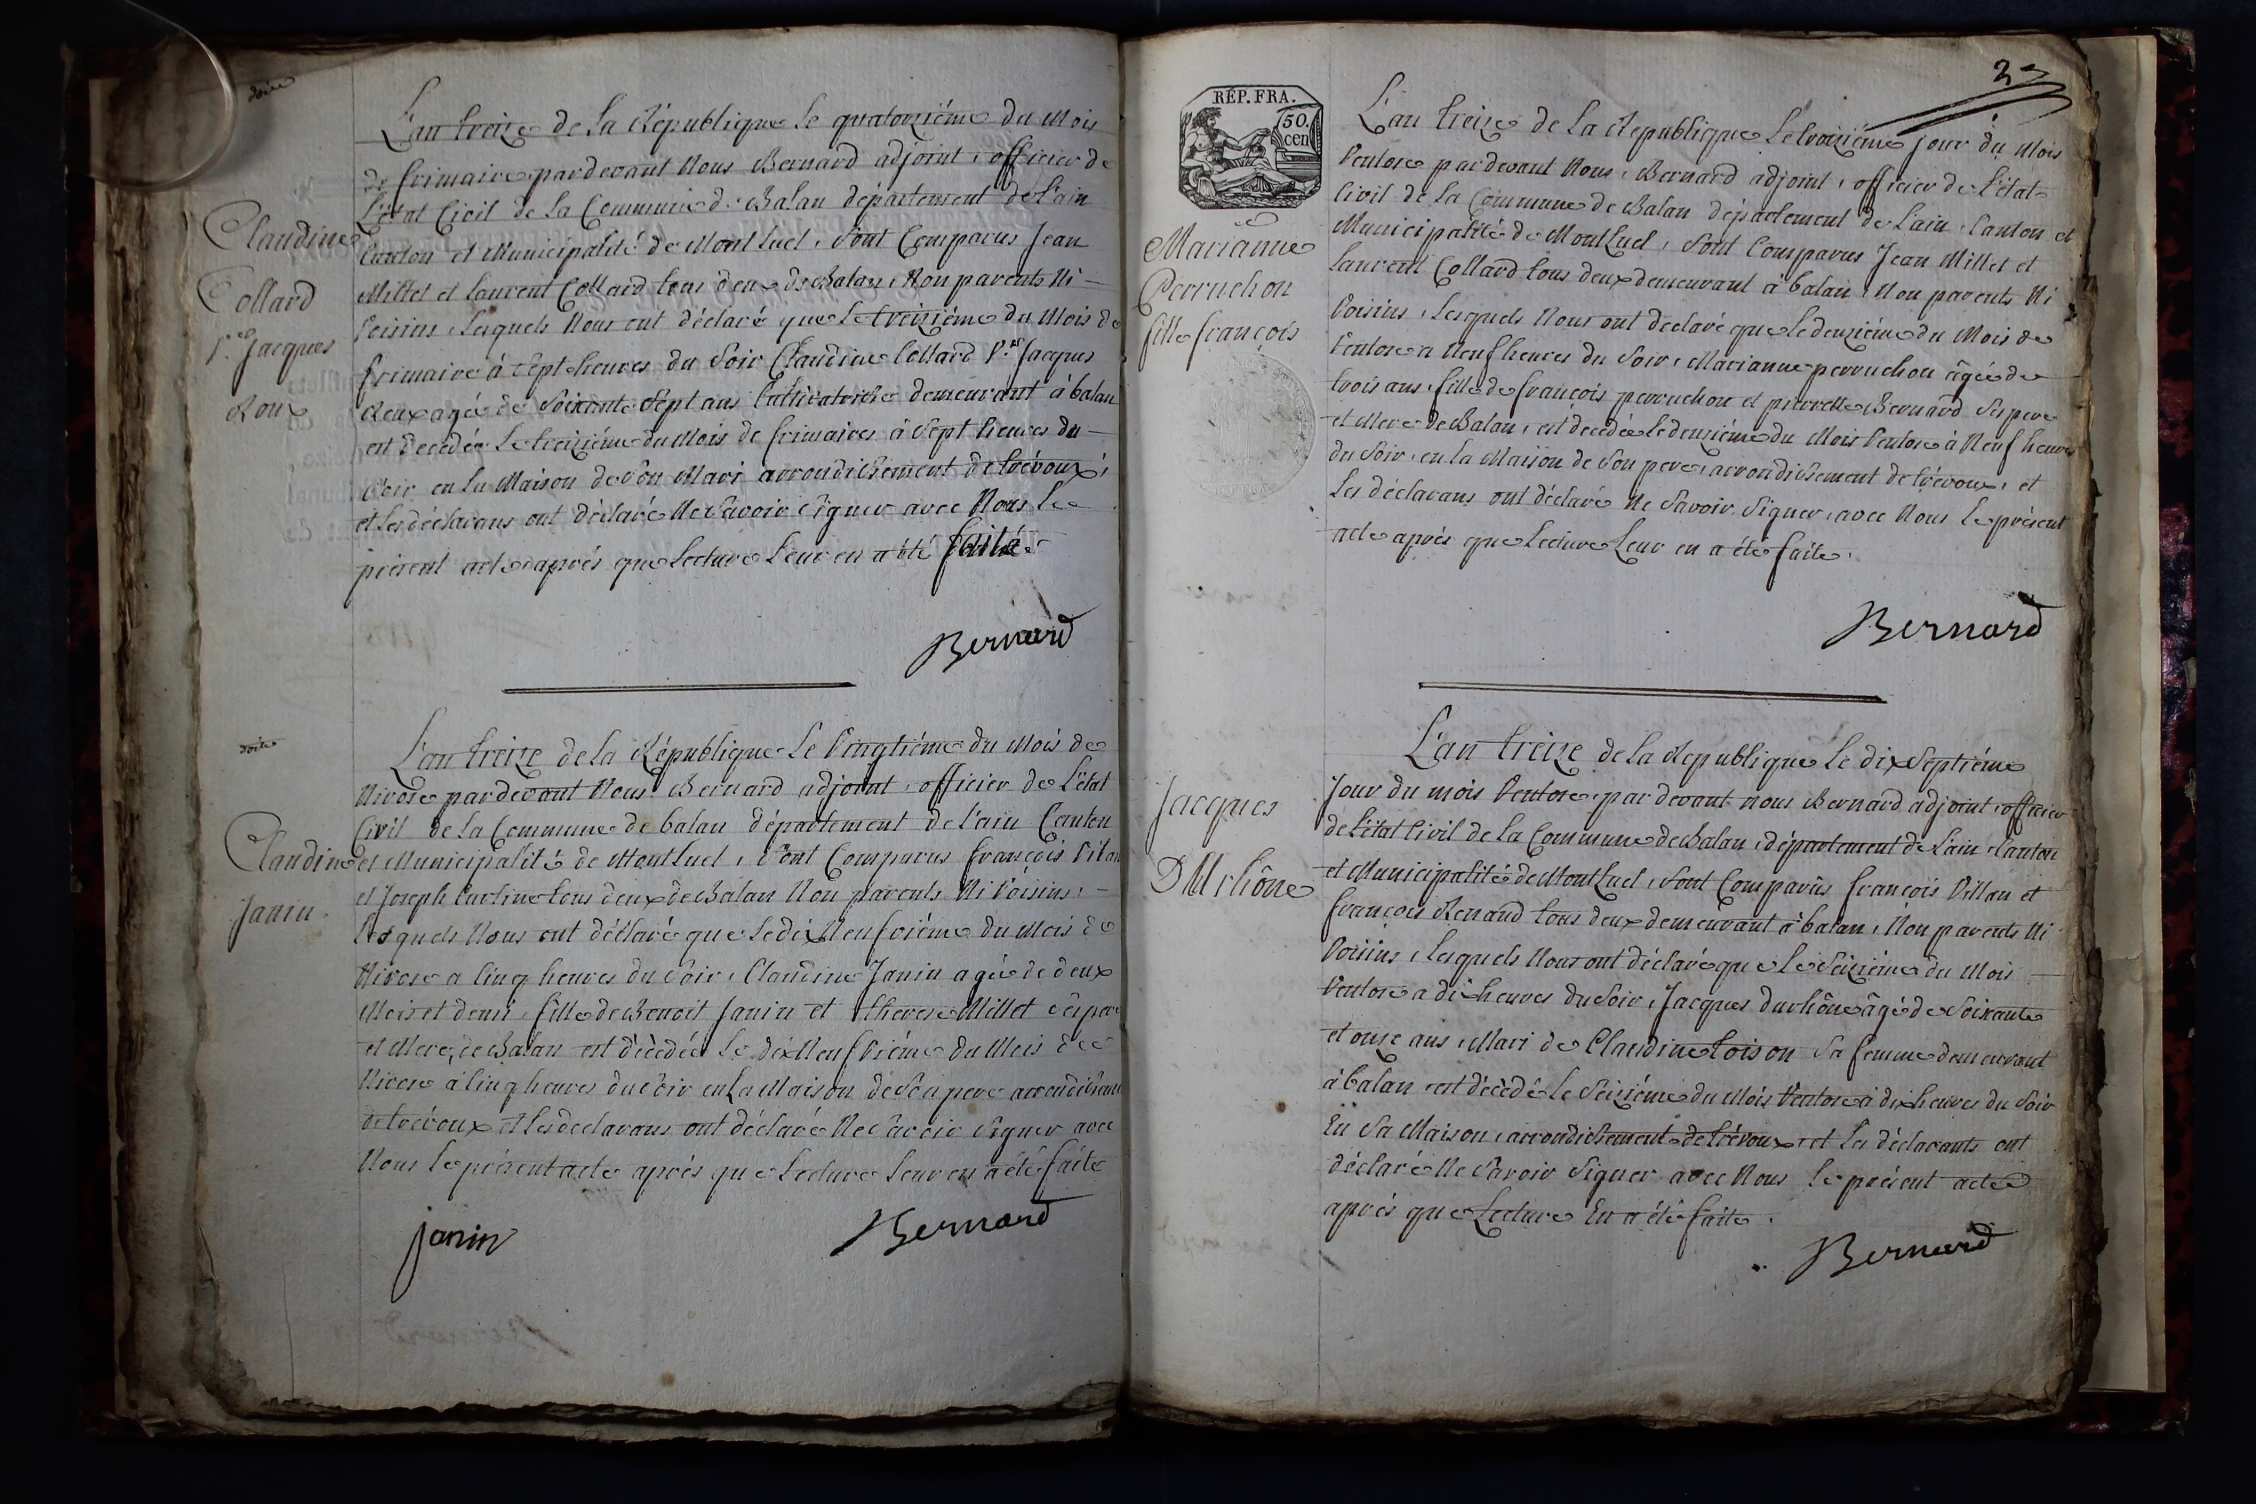 doite
L'an treize de la République le quatorziéme du Mois
de frimaire pardevant Nous Bernard adjoint, officier de
L'état Civil de la Commune de Balan département de L'ain
Canton et Municipalité de Montluel, sont Comparus Jean
Millet et laurent Collard tous deux de Balan, Non parents Ni
Voisins, lesquels Nous ont déclaré que le treiziéme du Mois de
frimaire à sept heures du Soir Claudine Collard V.e Jacques
Roux agée de soixante Sept ans Cultivatrice demeurant à balan
est decedée le treiziéme du Mois de frimaire à Sept heures du
Soir en la Maison de Son Mari arrondissement de trévoux,
et les déclarans ont déclaré Ne savoir signer avec Nous le
présent acte après que lecture leur en a été faite
Claudine
Collard
V.e Jacques
Roux
Bernard
doite
L'an treize de la République le Vingtiéme du Mois de
Nivose pardevant Nous Bernard adjoint, officier de L'état
Civil de la Commune de balan département de L'ain Canton
et Municipalité de Montluel, sont Comparus françois Vilan
et Joseph tous deux de Balan Non parents Ni Voisins,
lesquels Nous ont déclaré que le dix Neufviéme du Mois de
Nivose a Cinq heures du Soir, Claudine Janin agée de deux
Mois et demi, fille de Benoit Janin et therese Millet ses pere
et Mere, de Balan est décédée le dix Neufviéme du Mois de
Nivose à Cinq heures du Soir en la Maison de Son pere arrondissement
de trévoux et les declarans ont déclaré Ne Savoir Signer avec
Nous le présent acte après que lecture leur en a été faite
Claudine
Janin.
janin
Bernard
RÉP. FRA.
50.
cen
L'an treize de la République le troiziéme jour du Mois
Ventose pardevant Nous, Bernard adjoint, officier de l'état
Civil de la Commune de Balan département de L'ain, Canton et
Municipalité de Montluel, sont Comparus Jean Millet et
laurent Collard tous deux demeurant à balan, Non parents Ni
Voisins, lesquels Nous ont declaré que le deuxiéme du Mois de
Ventose a Neuf heures du Soir, Marianne perruchon âgée de
trois ans, fille de françois perruchon et pierrette Bernard Ses pere
et Mere de Balan, est decedée le deuxiéme du Mois Ventose à Neuf heures
du Soir, en la Maison de Son pere, arrondissement de trévoux, et
les déclarans ont déclaré Ne Savoir Signer, avec Nous le présent
acte après que lecture leur en a été faite.
Marianne
Perruchon
fille françois
Bernard
L'an treize de la République le dix Septiéme
Jour du mois Ventose, par devant nous Bernard adjoint, officier
de l'état Civil de la Commune de Balan, département de L'ain, Canton
et Municipalité de Montluel, sont Comparûs françois Villan et
françois Renand tous deux demeurant à balan, Non parents Ni
Voisins, lesquels Nous ont déclaré que le Seiziéme du Mois
Ventose a dix heures du Soir, Jacques durhône âgé de Soixante
et onze ans, Mari de Claudine toison Sa femme demeurant
à balan est décédé le Seiziéme du Mois Ventose à dix heures du Soir
En Sa Maison, arrondissement de trévoux, et les déclarants ont
déclaré Ne Savoir Signer avec Nous le présent acte
après que Lecture En a été faite.
Jacques
DuRhône
Bernard